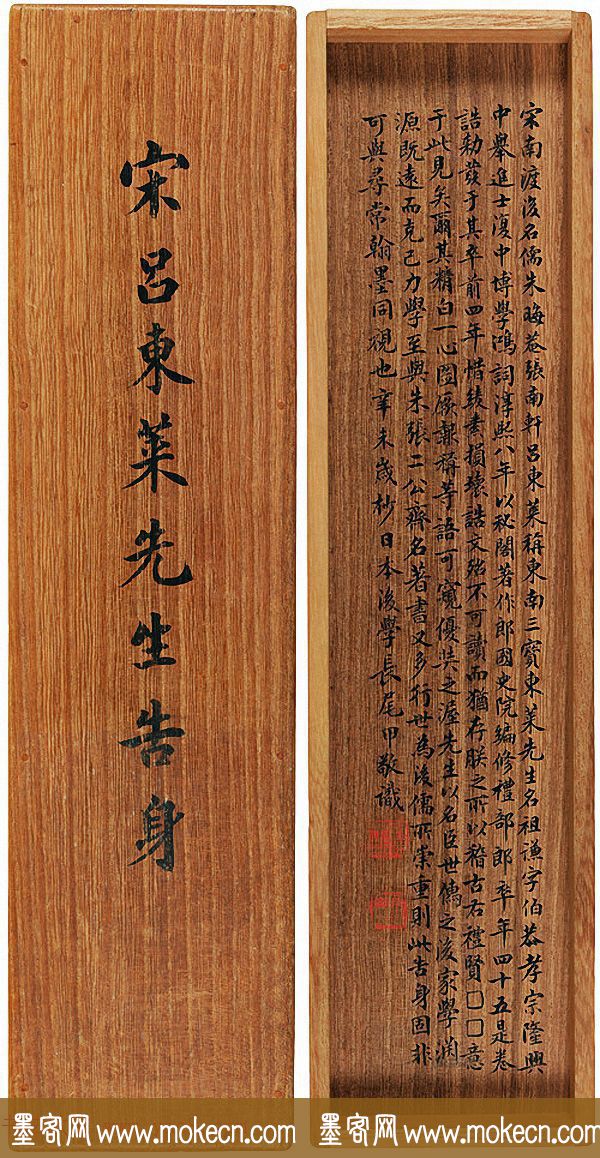 宋呂東萊先生告身
宋南渡後名儒朱晦菴張南軒呂東萊稱東南三寶東萊先生名祖謙字伯恭孝宗隆興
中舉進士復中博學鴻詞淳熙八年以秘閣著作郎國史院編修禮部郎卒年四十五是卷
誥勅發于其卒前四年惜綾素損壞誥文殆不可讀而猶存朕之所以稽古右禮賢□□意
于此見矣爾其精白一心圖厥報稱等語可窺優奖之渥先生以名臣世傳之後家學淵
源既遠而克己力學至與朱張二公齊名著書又多行世為後儒所崇重則此告身固非
可與尋常翰墨同視也辛未歲杪日本後學長尾甲敬識
墨客网 www.mokecn.com
墨客网 www.mokecn.com